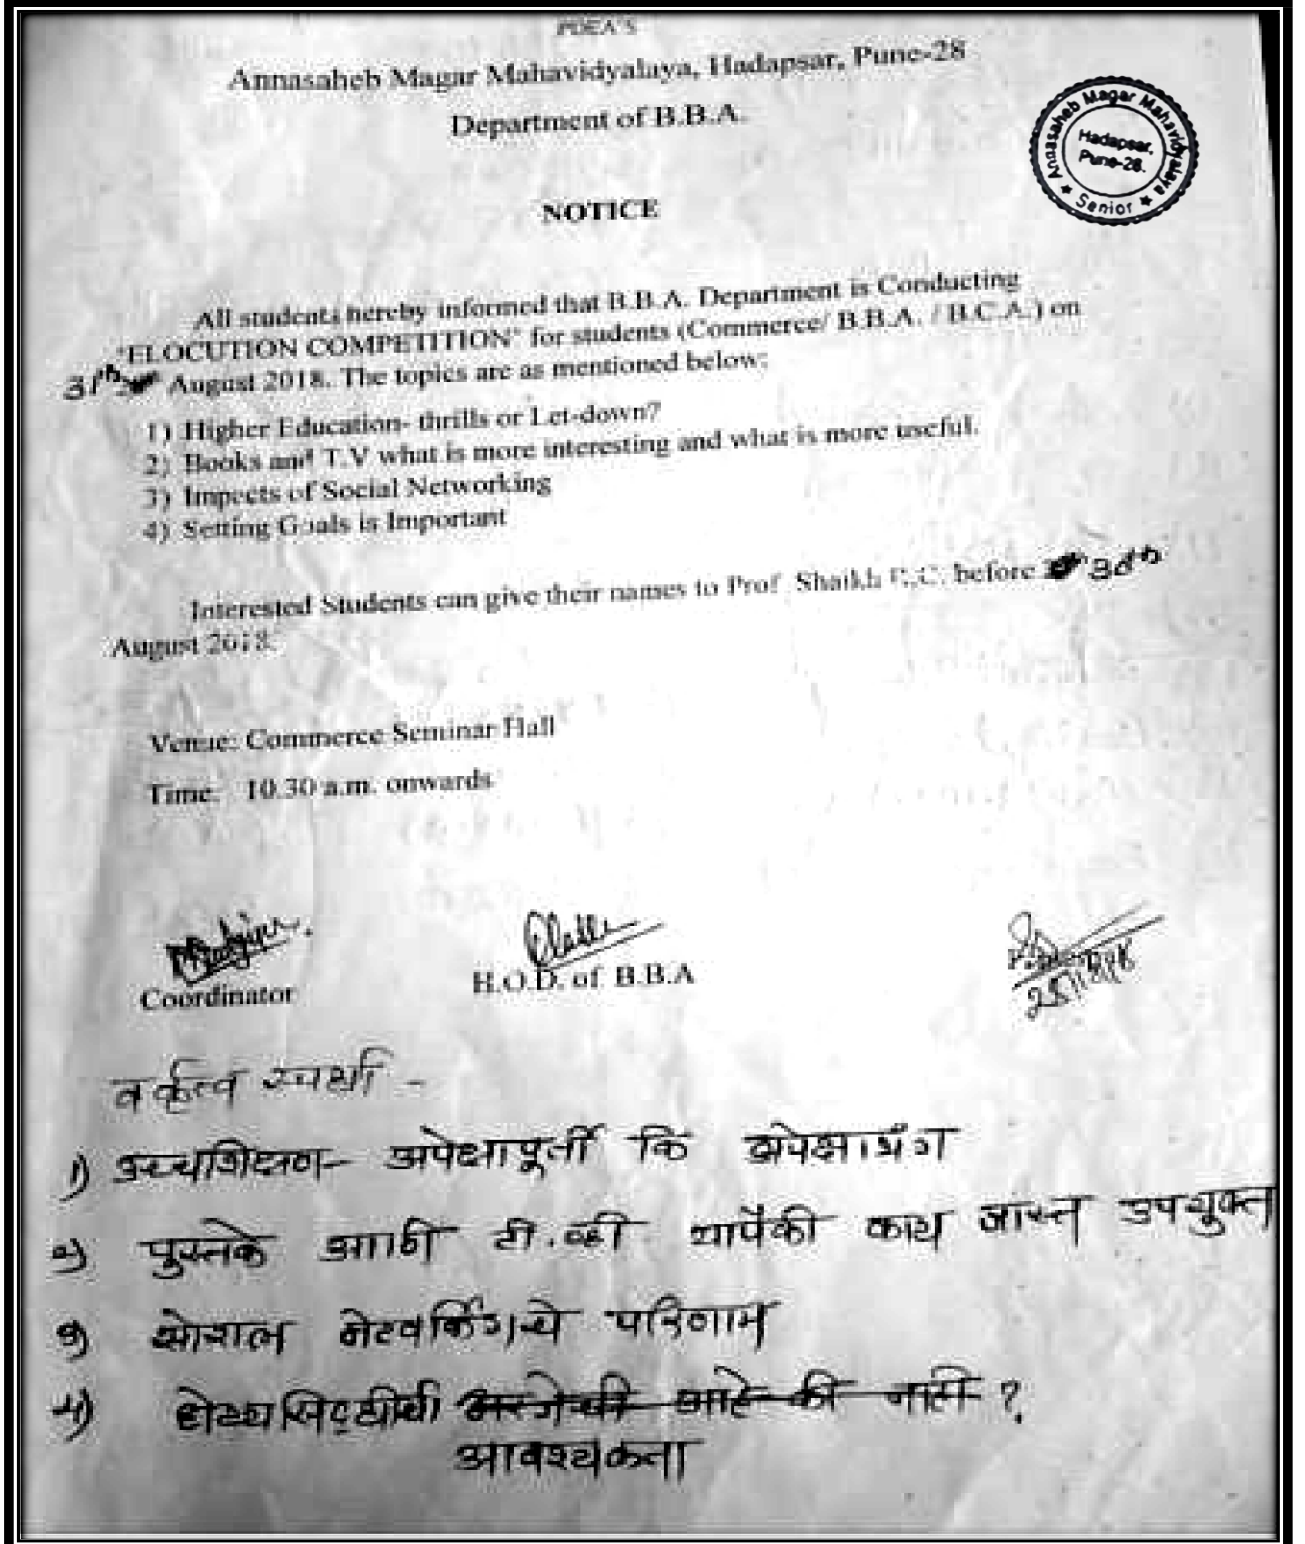 PDEA'S
Annasaheb Magar Mahavidyalaya, Hadapsar, Pune-28
Department of B.B.A.
Annasaheb Magar Mahavidyalaya
Hadapsar,
Pune-28.
★ Senior ★
NOTICE
All students hereby informed that B.B.A. Department is Conducting
"ELOCUTION COMPETITION" for students (Commerce/ B.B.A. / B.C.A.) on
31th August 2018. The topics are as mentioned below:
1) Higher Education- thrills or Let-down?
2) Books and T.V what is more interesting and what is more useful.
3) Impects of Social Networking
4) Setting Goals is Important
Interested Students can give their names to Prof. Shaikh before 30th
August 2018.
Venue: Commerce Seminar Hall
Time: 10.30 a.m. onwards
Coordinator
H.O.D. of B.B.A
वकृत्व स्पर्धा -
1) उच्चशिक्षण- अपेक्षापूर्ती कि अपेक्षाभंग
२) पुस्तके आणि टी.व्ही यापैकी काय जास्त उपयुक्त
३) सोशल नेटवर्किंगचे परिणाम
४) ध्येयसिद्धीची गरजेची आहे की नाही ?
आवश्यकता